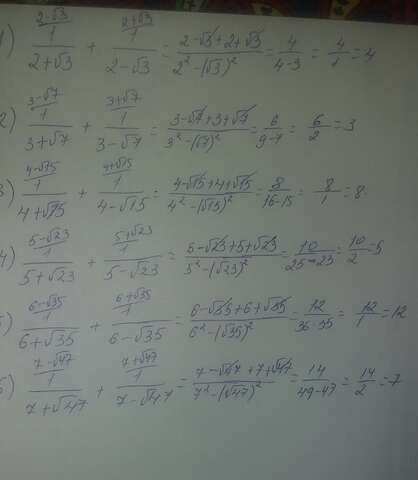 1) 1/(2+√3) (2-√3 + 1/(2-√3) (2+√3 = (2-√3+2+√3)/(2²-(√3)²) = 4/(4-3) = 4/1 = 4
2) 1/(3+√7) (3-√7 + 1/(3-√7) (3+√7 = (3-√7+3+√7)/(3²-(√7)²) = 6/(9-7) = 6/2 = 3
3) 1/(4+√15) (4-√15 + 1/(4-√15) (4+√15 = (4-√15+4+√15)/(4²-(√15)²) = 8/(16-15) = 8/1 = 8
4) 1/(5+√23) (5-√23 + 1/(5-√23) (5+√23 = (5-√23+5+√23)/(5²-(√23)²) = 10/(25-23) = 10/2 = 5
5) 1/(6+√35) (6-√35 + 1/(6-√35) (6+√35 = (6-√35+6+√35)/(6²-(√35)²) = 12/(36-35) = 12/1 = 12
6) 1/(7+√47) (7-√47 + 1/(7-√47) (7+√47 = (7-√47+7+√47)/(7²-(√47)²) = 14/(49-47) = 14/2 = 7